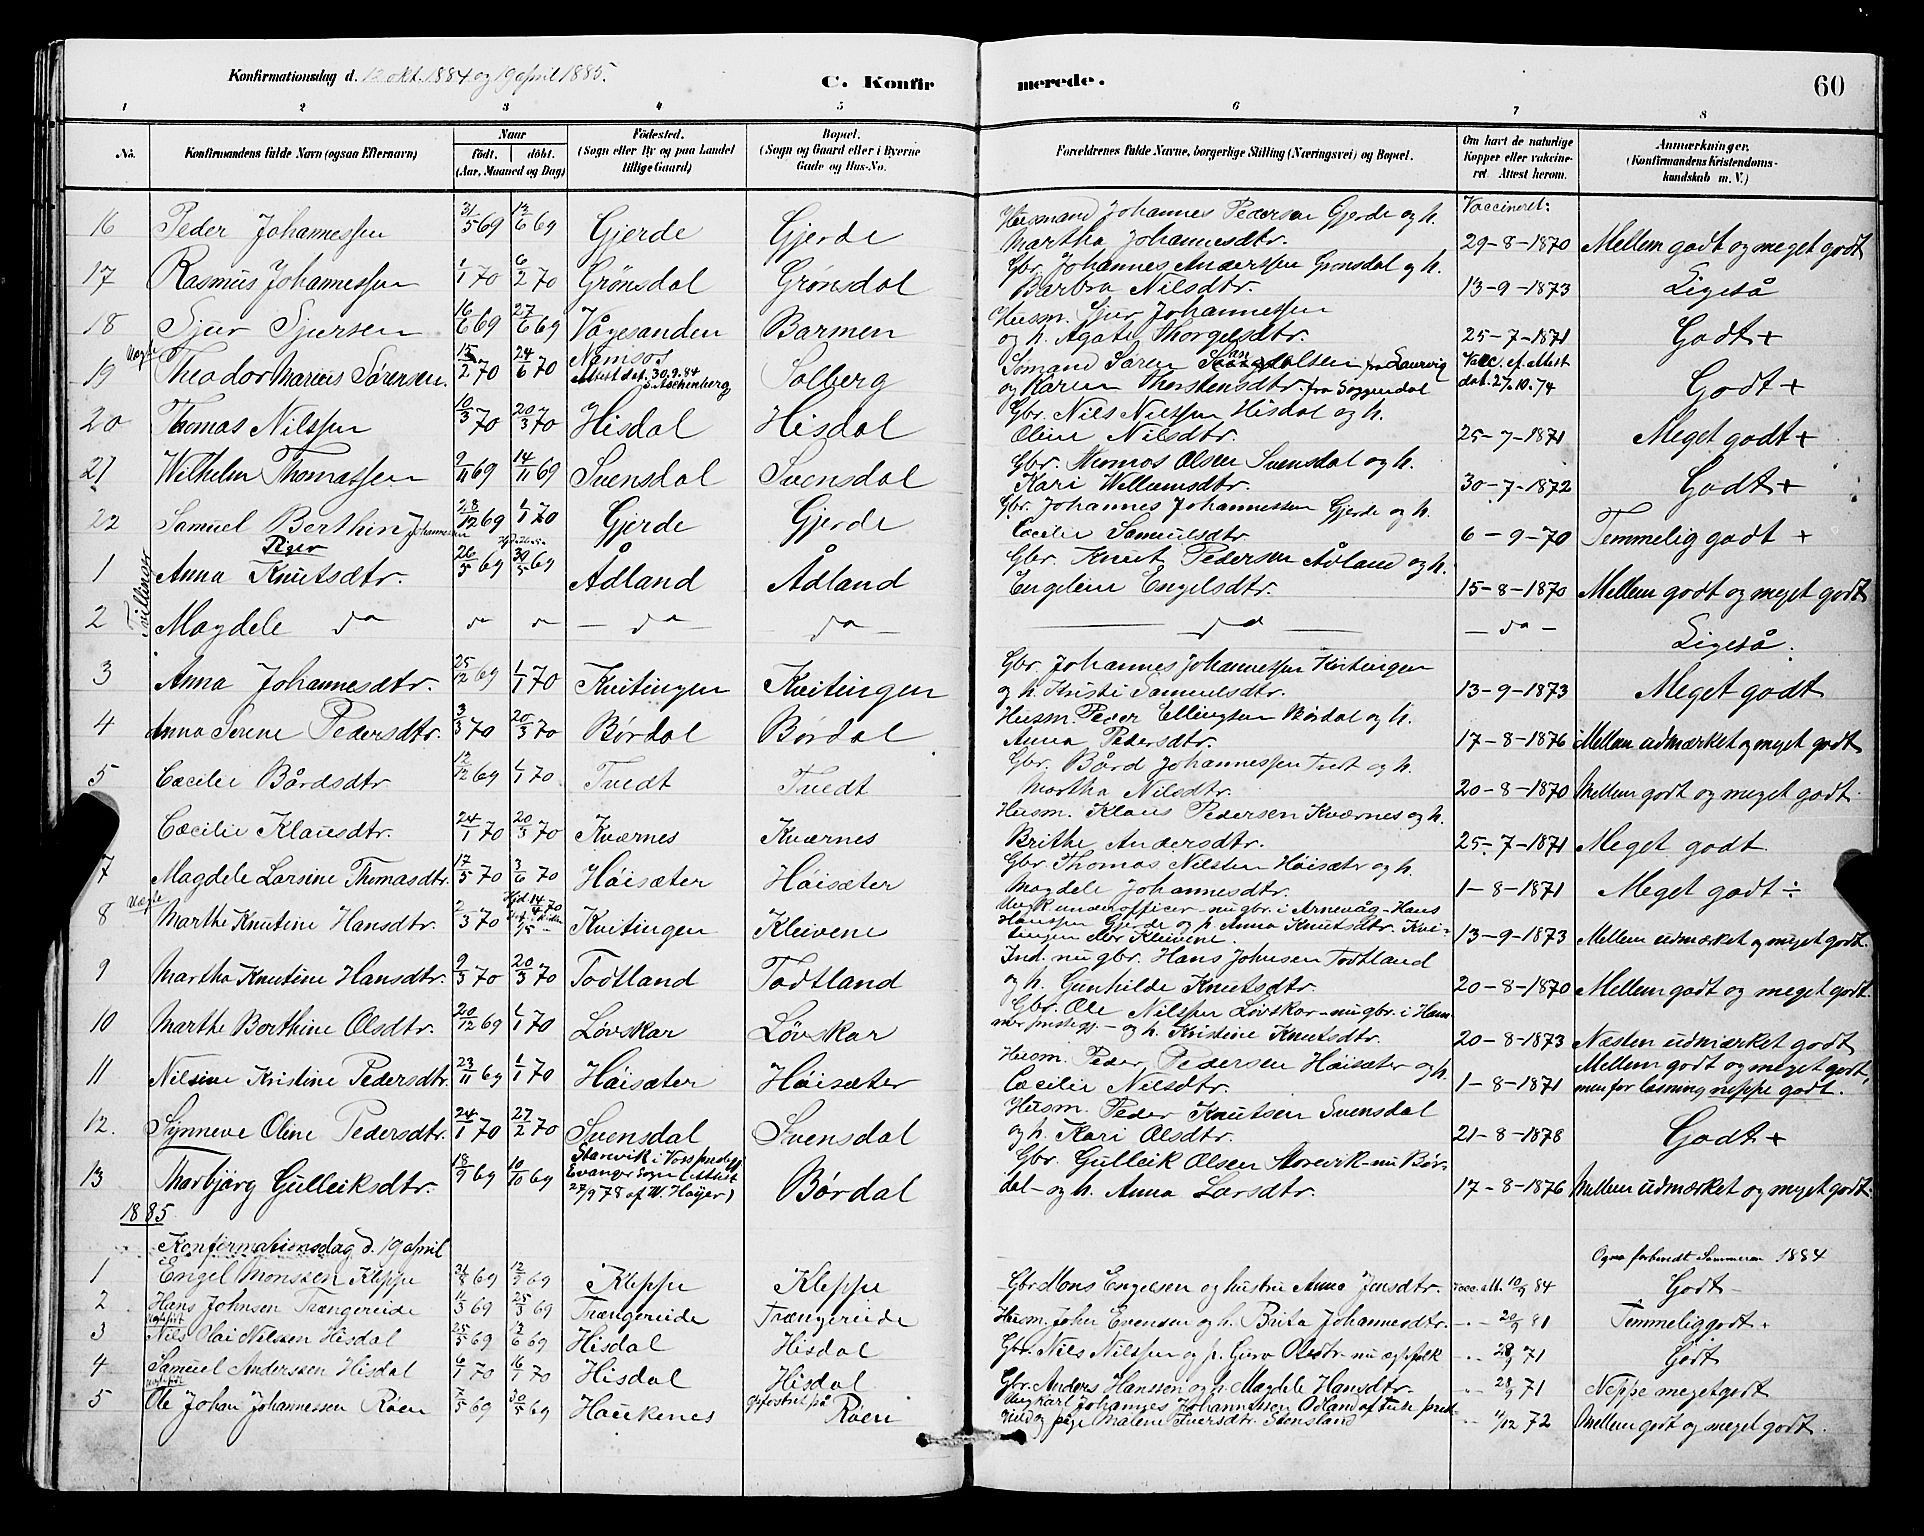 Konfirmationsdag d. 12 okt. 1884 og 19 april 1885.
C. Konfir
merede.
60
1 2 3 4 5 6 7 8
No.
Konfirmandens fulde Navn (ogsaa Efternavn)
Naar
födt. döbt.
(Aar, Maaned og Dag)
Födested.
(Sogn eller By og paa Landet
tillige Gaard)
Bopæl.
(Sogn og Gaard eller i Byerne
Gade og Hus-No.
Forældrenes fulde Navne, borgerlige Stilling (Næringsvei) og Bopæl.
Om havt de naturlige
Kopper eller vakcine-
ret Attest herom.
Anmærkninger.
(Konfirmandens Kristendoms-
kundskab m. V.)
Vaccineret:
16 Peder Johannessen 31/5 69 13/6 69 Gjerde Gjerde Husmand Johannes Pedersen Gjerde og h.
Martha Johannesdtr. 29-8-1870 Mellem godt og meget godt
17 Rasmus Johannessen 1/1 70 6/2 70 Grönsdal Grönsdal Gbr. Johannes Anderssen Grönsdal og h.
Barbra Nilsdtr. 13-9-1873 Ligeså
18 Sjur Sjursen 16/6 69 27/6 69 Vågesanden Barmen Husm. Sjur Johannessen
og h. Agate Thorgelsdtr. 25-7-1871 Godt +
19 Theodor Marius Sørensen 15/2 70 24/6 70 Namsos Solberg
Attest dat. 30.9.84
S. Aschenberg
Sömand Sören Olsen fra Laurvig
og Karen Thorstensdtr. fra Soggendal
Vacc. ef. Attest
dat. 27.10.74
Godt +
20 Thomas Nilssen 10/3 70 20/3 70 Hisdal Hisdal Gbr. Nils Nilssen Hisdal og h.
Oline Nilsdtr. 25-7-1871 Meget godt +
21 Wilhelm Thomassen 9/11 69 14/11 69 Svensdal Svensdal Gbr. Thomas Olsen Svensdal og h.
Kari Willumsdtr. 30-7-1872 Godt +
22 Samuel Berthin Johannessen 28/12 69 1/1 70 Gjerde Gjerde Gbr. Johannes Johannessen Gjerde og h.
Cæcilie Samuelsdtr. 6-9-70 Temmelig godt +
Piger
Tvillinger
1 Anna Knutsdtr. 26/5 69 30/5 69 Ådland Ådland Gbr. Knut Pedersen Ådland og h.
Engeline Engelsdtr. 15-8-1870 Mellem godt og meget godt
2 Magdele do do do — do — do — do — do — Ligeså.
3 Anna Johannesdtr. 25/12 69 1/1 70 Kvitingen Kvitingen Gbr. Johannes Johannessen Kvitingen
og h. Kristi Samuelsdtr. 13-9-1873 Meget godt
4 Anna Serene Pedersdtr. 3/3 70 20/3 70 Børdal Børdal Husm. Peder Ellingsen Børdal og h.
Anna Pedersdtr. 17-8-1876 Mellem udmærket og meget godt
5 Cæcilie Bårdsdtr 12/12 69 1/1 70 Tvedt Tvedt Gbr. Bård Johannessen Tvedt og h.
Martha Nilsdtr. 20-8-1870 Mellem godt og meget godt.
Cæcilie Klausdtr. 24/1 70 20/3 70 Kværnes Kværnes Husm. Klaus Pedersen Kværnes og h.
Brithe Andersdtr. 25-7-1871 Meget godt
7 Magdele Larsine Thomasdtr. 17/5 70 3/6 70 Høisæter Høisæter Gbr. Thomas Nilsen Høisæter og h.
Magdele Johannesdtr. 1-8-1871 Meget godt ÷
8 Marthe Knutine Hansdtr. 2/3 70 Hjd. 14/4 70 Kvitingen Kleivene
Uægte underofficer - nu gbr. i Arnevåg - Hans
Hanssen Gjerde og p. Anna Knutsdtr. Kvi-
tingen eller Kleivene. 13-9-1873 Mellem udmærket og meget godt.
9 Martha Knutine Hansdtr. 9/3 70 20/3 70 Todtland Todtland Ind. nu gbr. Hans Johnsen Todtland
og h. Gunhilde Knutsdtr. 20-8-1870 Mellem godt og meget godt.
10 Marthe Berthine Olsdtr. 20/12 69 1/1 70 Løvskar Løvskar Gbr. Ole Nilssen Løvskar - nu gbr. i Ham-
mer prestegj. - og h. Kristine Knutsdtr. 20-8-1873 Næsten udmærket godt
11 Nilsine Kristine Pedersdtr. 23/11 69 1/1 70 Høisæter Høisæter Husm. Peder Pedersen Høisæter og h.
Cæcilie Nilsdtr. 1-8-1871 Mellem godt og meget godt,
men for læsning neppe godt.
12. Synneve Oline Pedersdtr. 24/1 70 27/2 70 Svensdal Svensdal Husm. Peder Knutsen Svensdal
og h. Kari Olsdtr. 21-8-1878 Godt +
13 Marbjörg Gulleiksdtr. 18/9 69 10/10 69 Storevik i Voss prestegj Børdal
Evanger Sogn (Attest
27/9 78 af W. Høyer)
Gbr. Gulleik Olsen Storevik - nu Bør-
dal - og h. Anna Larsdtr. 17-8-1876 Mellem udmærket og meget godt.
1885
Konfirmationsdag d. 19 april
Også forberedt Sommeren 1884
1 Engel Monssen Kleppe 31/8 69 12/9 69 Kleppe Kleppe Gbr. Mons Engelsen og hustru Anna Jensdtr. vacc. att. 10/9 84 Godt -
2 Hans Johnsen Trængereide 11/3 69 25/3 69 Trængereide Trængereide Husm. John Evensen og h. Brita Johannesdtr. - " - 20/9 81 Temmelig godt.
3 Nils Olai Nilssen Hisdal 25/5 69 13/6 69 Hisdal Hisdal Gbr. Nils Nilssen og p. Guro Olsdtr. nu ægtefolk " 28/9 71 Godt
4 Samuel Anderssen Hisdal 6/1 70 16/1 70 Hisdal Hisdal Gbr. Anders Hanssen og h. Magdele Hansdtr. " 28/9 71 Neppe meget godt
5 Ole Johan Johannessen Røen 7/5 69 30/5 69 Haukenes opfostret på Røen Ungkarl Johannes Johannessen Ådland af Fuse prest
og pige Malene Iversdtr. Stensland " 11/12 72 Mellem godt og meget godt.